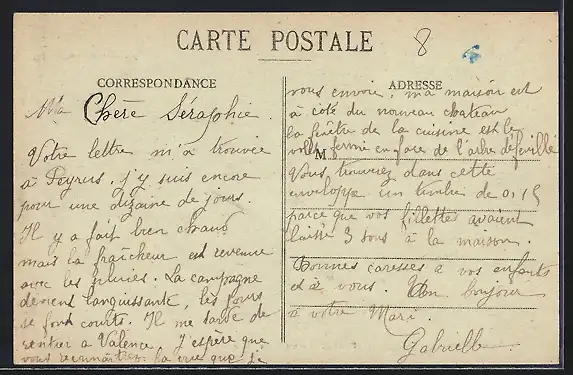 CARTE POSTALE
8
CORRESPONDANCE
Ma Chère Séraphie.
Votre lettre m'a trouvée
à Peyrus, j'y suis encore
pour une dizaine de jours.
Il y a fait bien chaud
mais la fraîcheur est revenue
avec les pluies. La campagne
devient languissante, les jours
se font courts. Il me tarde de
rentrer à Valence. J'espère que
vous reconnaîtrez la vue que je
ADRESSE
vous envoie, ma maison est
à côté du nouveau chateau
la fenêtre de la cuisine est le
volet fermé en face de l'arbre défeuillé
M
Vous trouverez dans cette
enveloppe un timbre de 0,15
parce que vos fillettes avaient
laissé 3 sous à la maison.
Bonnes caresses à vos enfants
et à vous. Un bonjour
à votre Mari.
Gabrielle